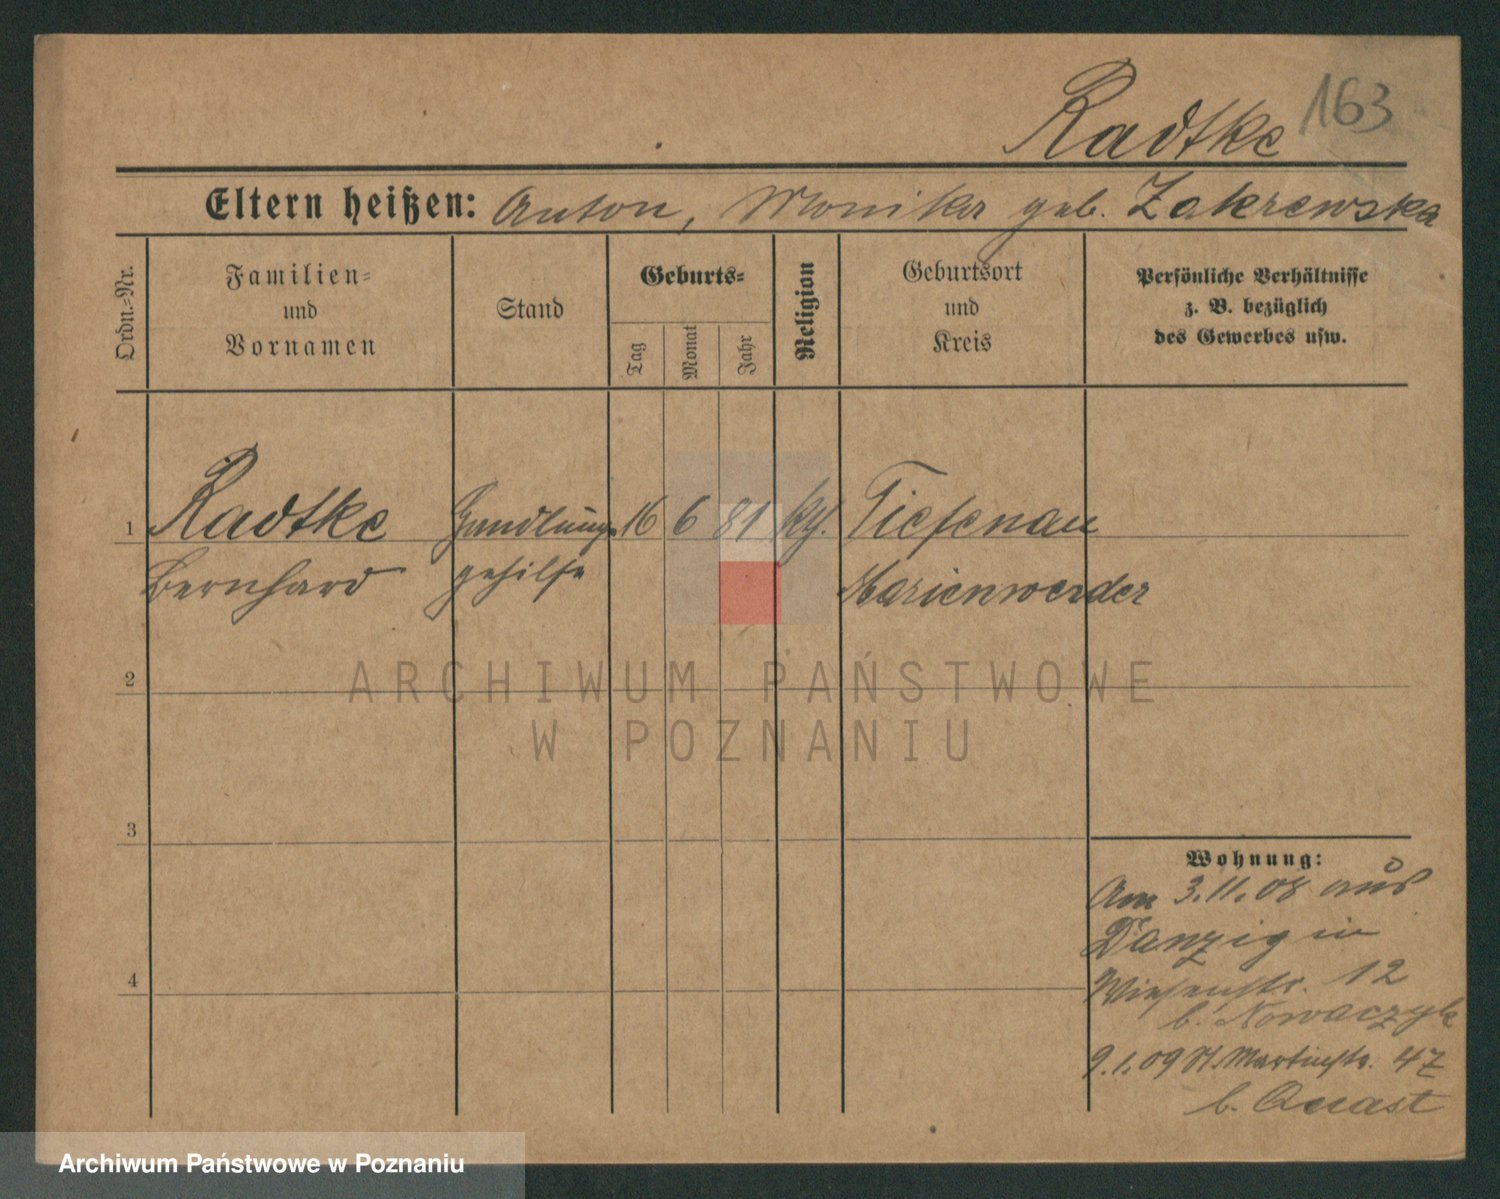 Radtke 163
Eltern heißen: Anton, Monika geb. Zakrewska
Ordn.=Nr.
Familien=
und
Vornamen
Stand
Geburts=
Tag
Monat
Jahr
Religion
Geburtsort
und
Kreis
Persönliche Verhältnisse
z. B. bezüglich
des Gewerbes usw.
1 Radtke Handlungs 16 6 81 kth. Tiefenau
Bernhard gehilfe Marienwerder
2
3
4
Wohnung:
Am 3.11.08 aus
Danzig in
Wiesenstr. 12
b. Nowaczyk
9.1.09 St. Martinstr. 47
b. Quast
ARCHIWUM PAŃSTWOWE
W POZNANIU
Archiwum Państwowe w Poznaniu